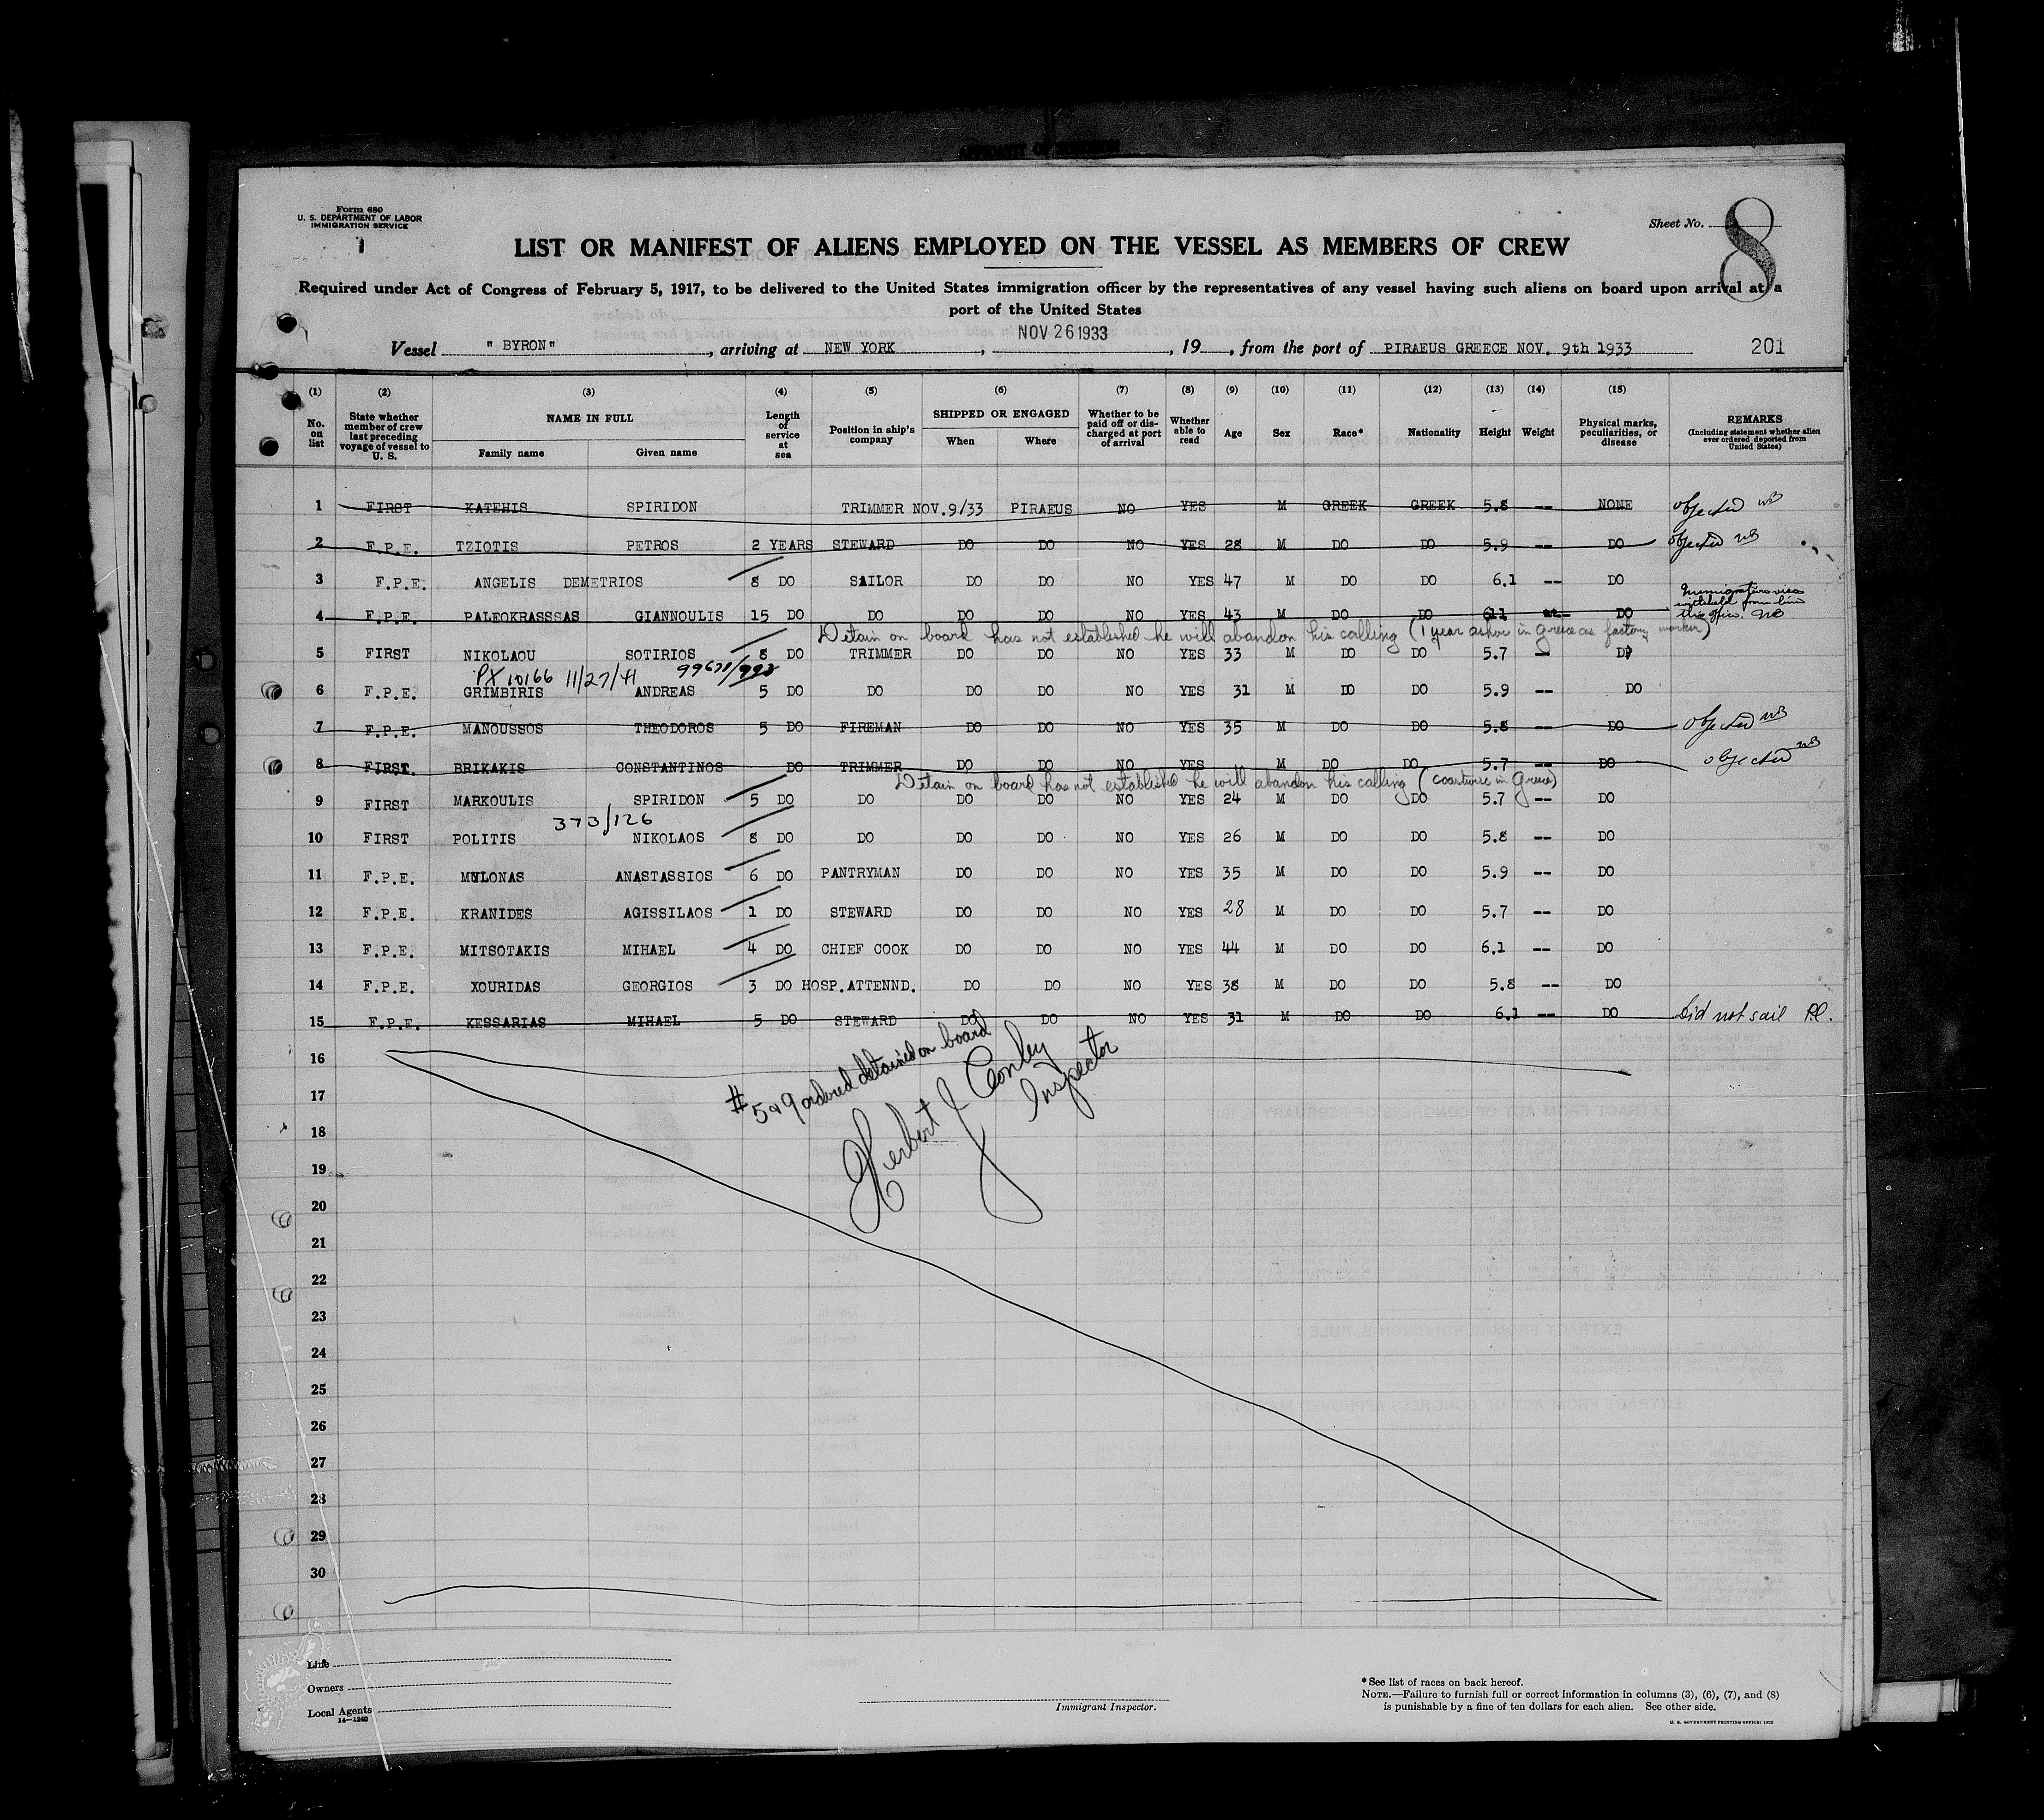 Form 680
U. S. DEPARTMENT OF LABOR
IMMIGRATION SERVICE
Sheet No. 8
LIST OR MANIFEST OF ALIENS EMPLOYED ON THE VESSEL AS MEMBERS OF CREW
Required under Act of Congress of February 5, 1917, to be delivered to the United States immigration officer by the representatives of any vessel having such aliens on board upon arrival at a
port of the United States
Vessel " BYRON" , arriving at NEW YORK , NOV 26 1933 , 19 , from the port of PIRAEUS GREECE NOV. 9th 1933 201
(1) (2) (3) (4) (5) (6) (7) (8) (9) (10) (11) (12) (13) (14) (15)
No. on list State whether member of crew last preceding voyage of vessel to U. S. NAME IN FULL Family name Given name Length of service at sea Position in ship's company SHIPPED OR ENGAGED When Where Whether to be paid off or discharged at port of arrival Whether able to read Age Sex Race* Nationality Height Weight Physical marks, peculiarities, or disease REMARKS (Including statement whether alien ever ordered deported from United States)
1 FIRST KATEHIS SPIRIDON TRIMMER NOV.9/33 PIRAEUS NO YES M GREEK GREEK 5.8 -- NONE objected WB
2 F.P.E. TZIOTIS PETROS 2 YEARS STEWARD DO DO NO YES 28 M DO DO 5.9 -- DO objected WB
3 F.P.E. ANGELIS DEMETRIOS 8 DO SAILOR DO DO NO YES 47 M DO DO 6.1 -- DO
4 F.P.E. PALEOKRASSSAS GIANNOULIS 15 DO DO DO DO NO YES 43 M DO DO 6.1 -- DO Immigration visa withheld from him this office. WB
Detain on board has not established he will abandon his calling (1 year ashore in Greece as factory worker)
5 FIRST NIKOLAOU SOTIRIOS 8 DO TRIMMER DO DO NO YES 33 M DO DO 5.7 -- DO
PX 10166 11/27/41
6 F.P.E. GRIMBIRIS ANDREAS 5 DO DO DO DO NO YES 31 M DO DO 5.9 -- DO
7 F.P.E. MANOUSSOS THEODOROS 5 DO FIREMAN DO DO NO YES 35 M DO DO 5.8 -- DO objected WB
8 FIRST BRIKAKIS CONSTANTINOS DO TRIMMER DO DO NO YES M DO DO 5.7 -- DO objected WB
Detain on board has not established he will abandon his calling (coastwise in Greece)
9 FIRST MARKOULIS SPIRIDON 5 DO DO DO DO NO YES 24 M DO DO 5.7 -- DO
373/126
10 FIRST POLITIS NIKOLAOS 8 DO DO DO DO NO YES 26 M DO DO 5.8 -- DO
11 F.P.E. MYLONAS ANASTASSIOS 6 DO PANTRYMAN DO DO NO YES 35 M DO DO 5.9 -- DO
12 F.P.E. KRANIDES AGISSILAOS 1 DO STEWARD DO DO NO YES 28 M DO DO 5.7 -- DO
13 F.P.E. MITSOTAKIS MIHAEL 4 DO CHIEF COOK DO DO NO YES 44 M DO DO 6.1 -- DO
14 F.P.E. XOURIDAS GEORGIOS 3 DO HOSP.ATTENND. DO DO NO YES 38 M DO DO 5.8 -- DO
15 F.P.E. KESSARIAS MIHAEL 5 DO STEWARD DO DO NO YES 31 M DO DO 6.1 -- DO Did not sail
16
# 5 & 9 ordered detained on board
Herbert J Conley
Inspector
17
18
19
20
21
22
23
24
25
26
27
28
29
30
Line
Owners
Local Agents
14—1240
Immigrant Inspector.
*See list of races on back hereof.
NOTE.—Failure to furnish full or correct information in columns (3), (6), (7), and (8)
is punishable by a fine of ten dollars for each alien. See other side.
U. S. GOVERNMENT PRINTING OFFICE: